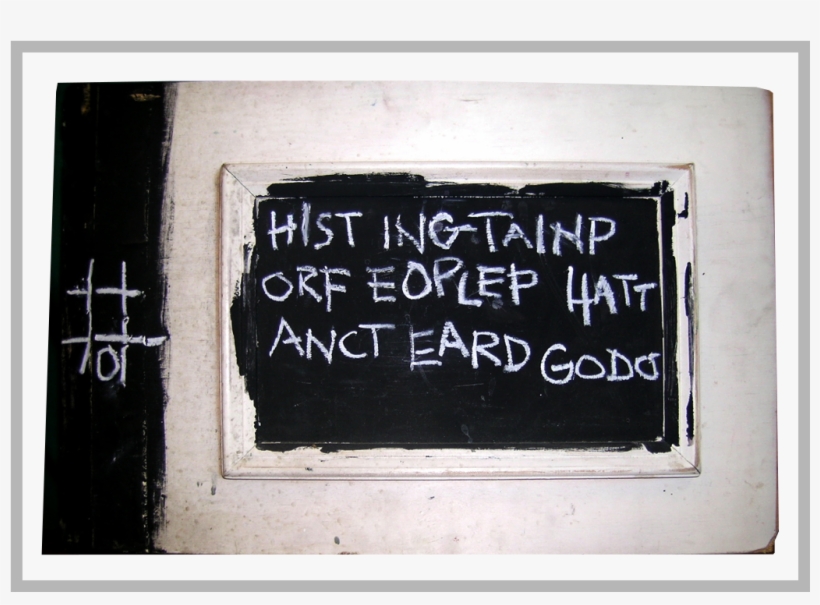 HIST ING-TAINP
ORF EOPLEP HATT
ANCT EARD GODO
#
O